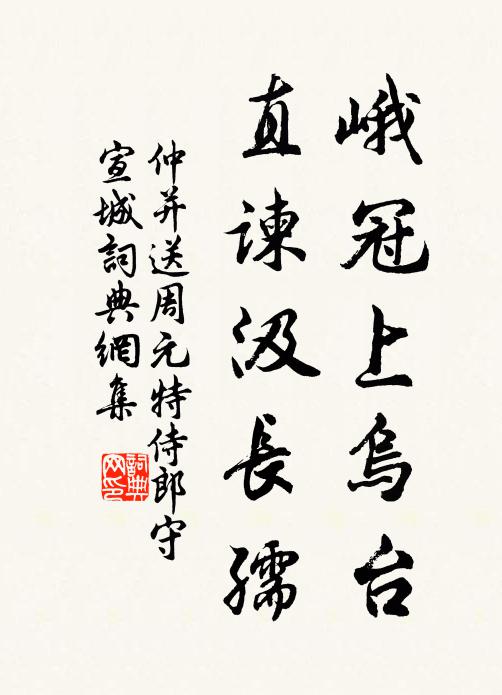 峨冠上烏台
直諫汲長孺
仲并送周元特侍郎守
宣城詞典網集
詞典網印